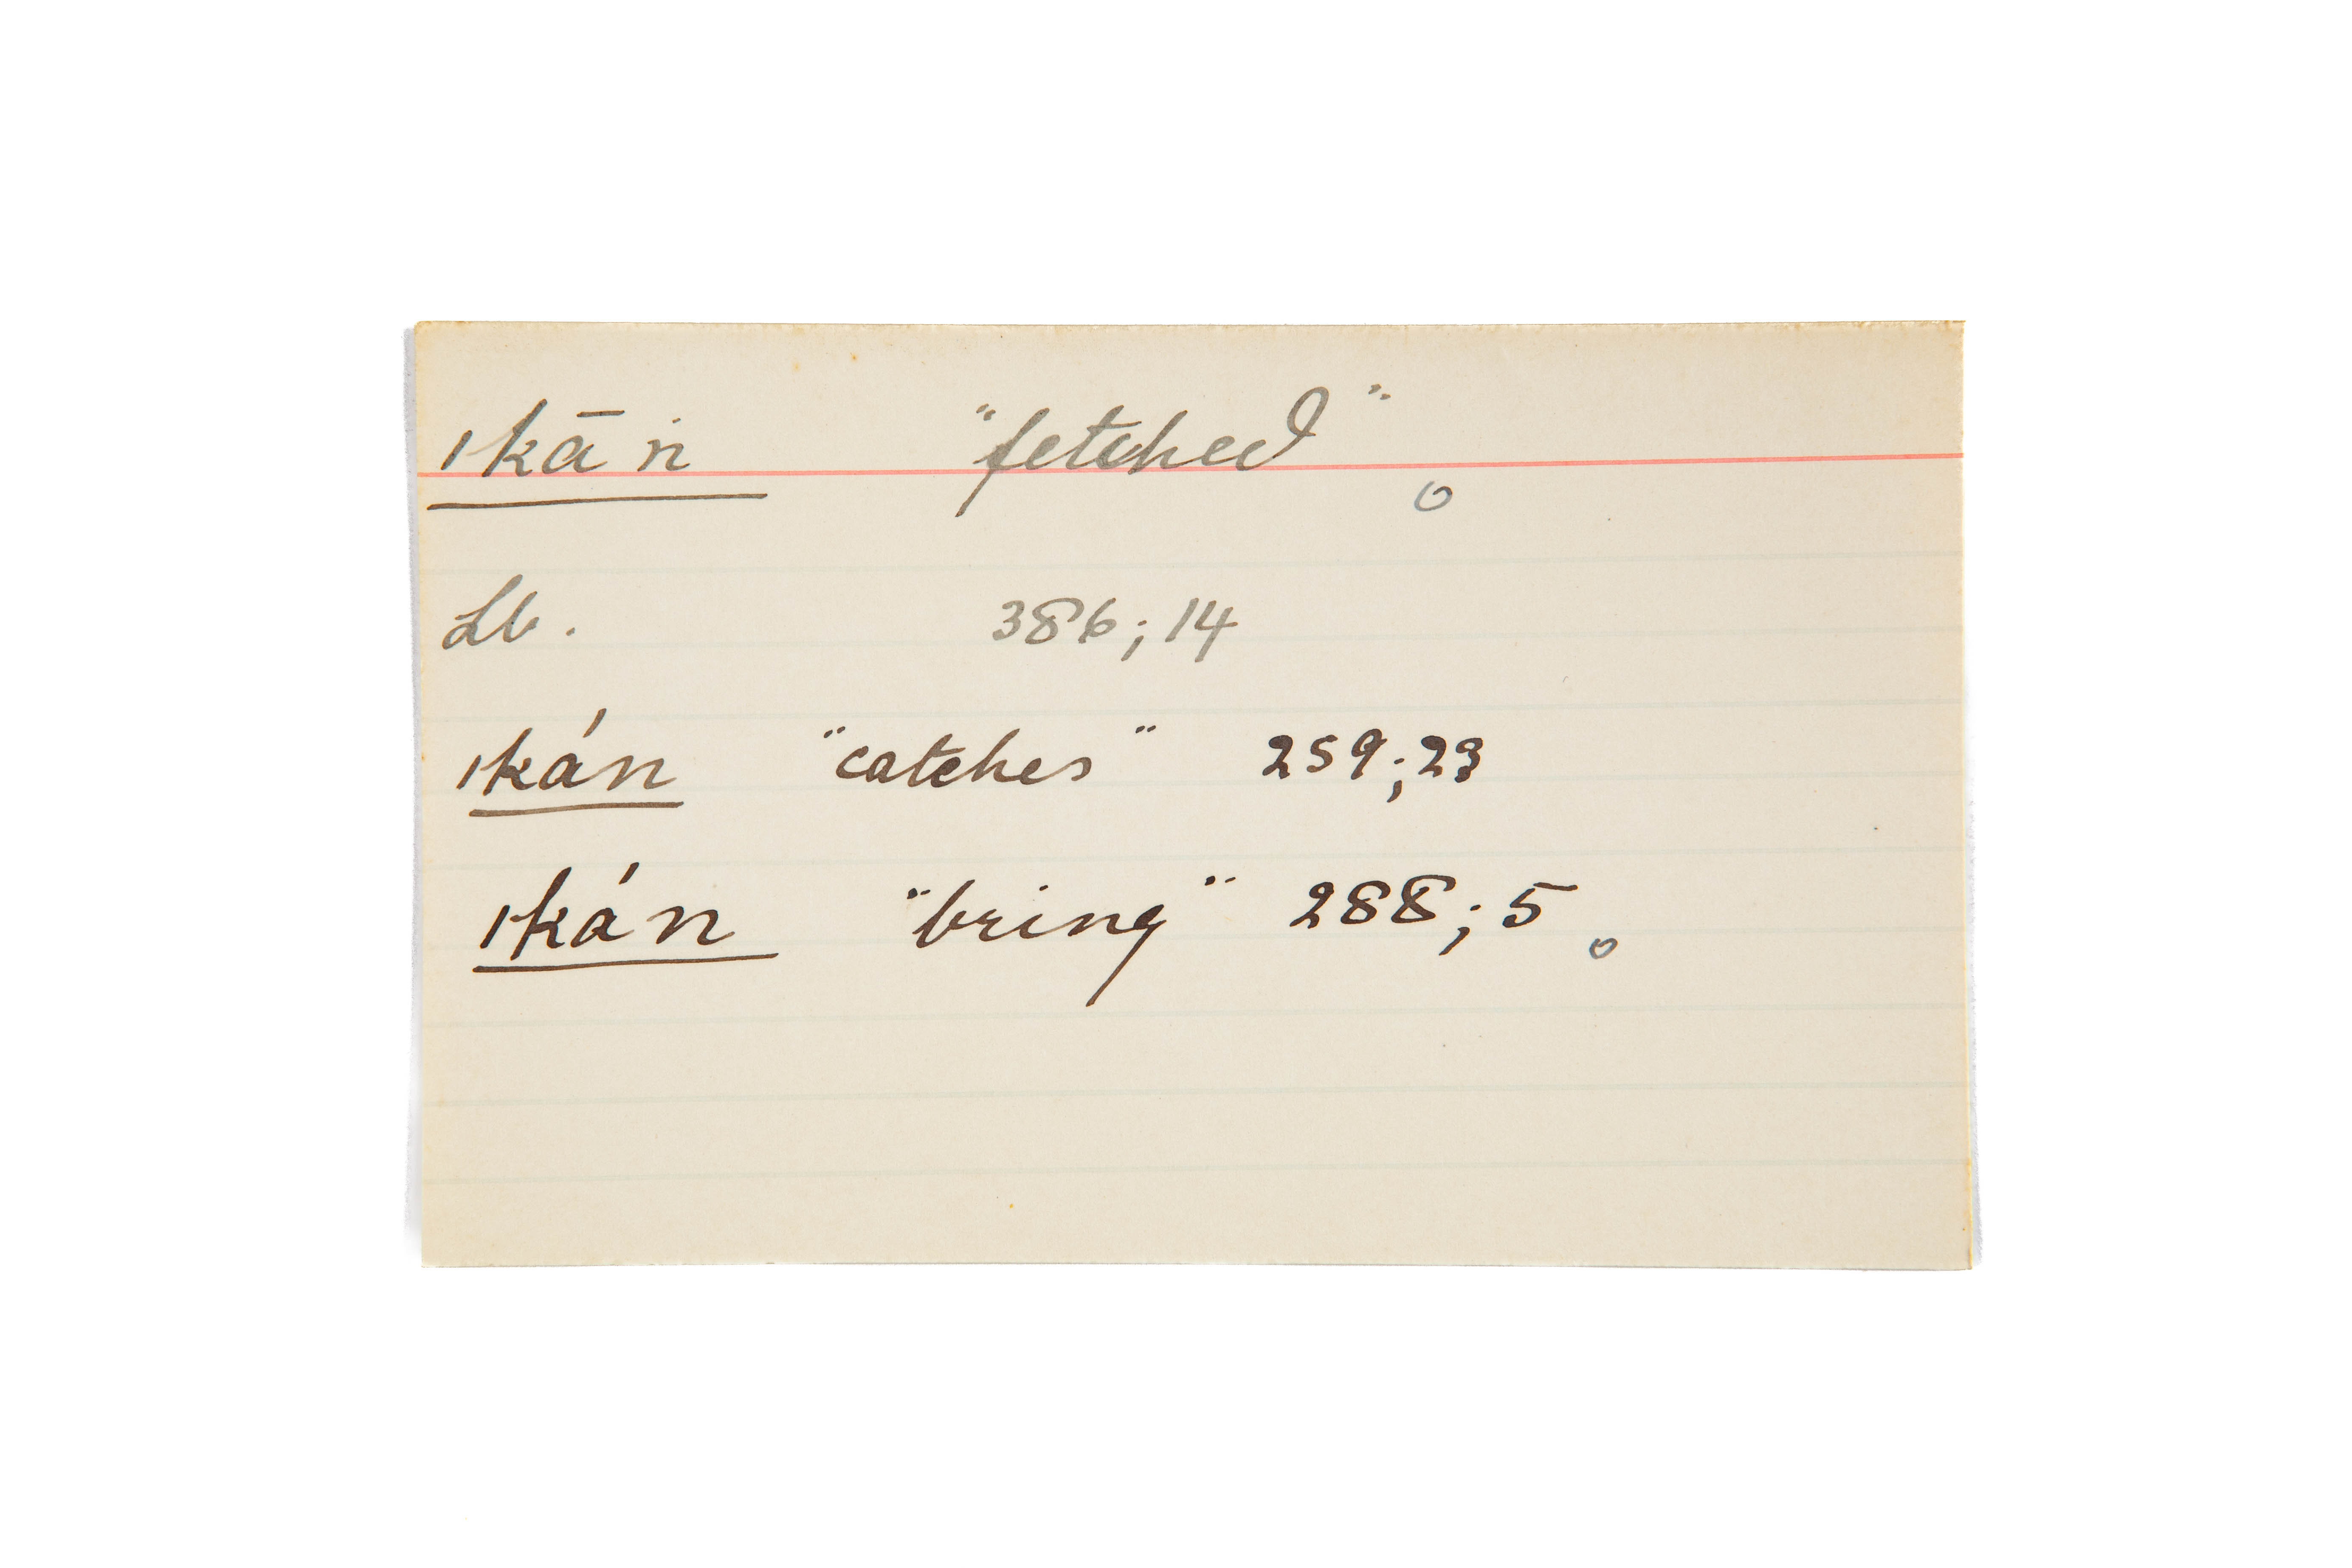 ıkā ṅ "fetched"
Lb. 386; 14
ıkán "catches" 259; 23
ıkán "bring" 288; 5